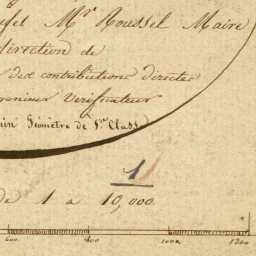 Mr. Roussel Maire
direction de
des contributions directes
premier Verificateur
Géomètre de 1re Classe
1
de 1 à 10,000
600 800 1000 1200